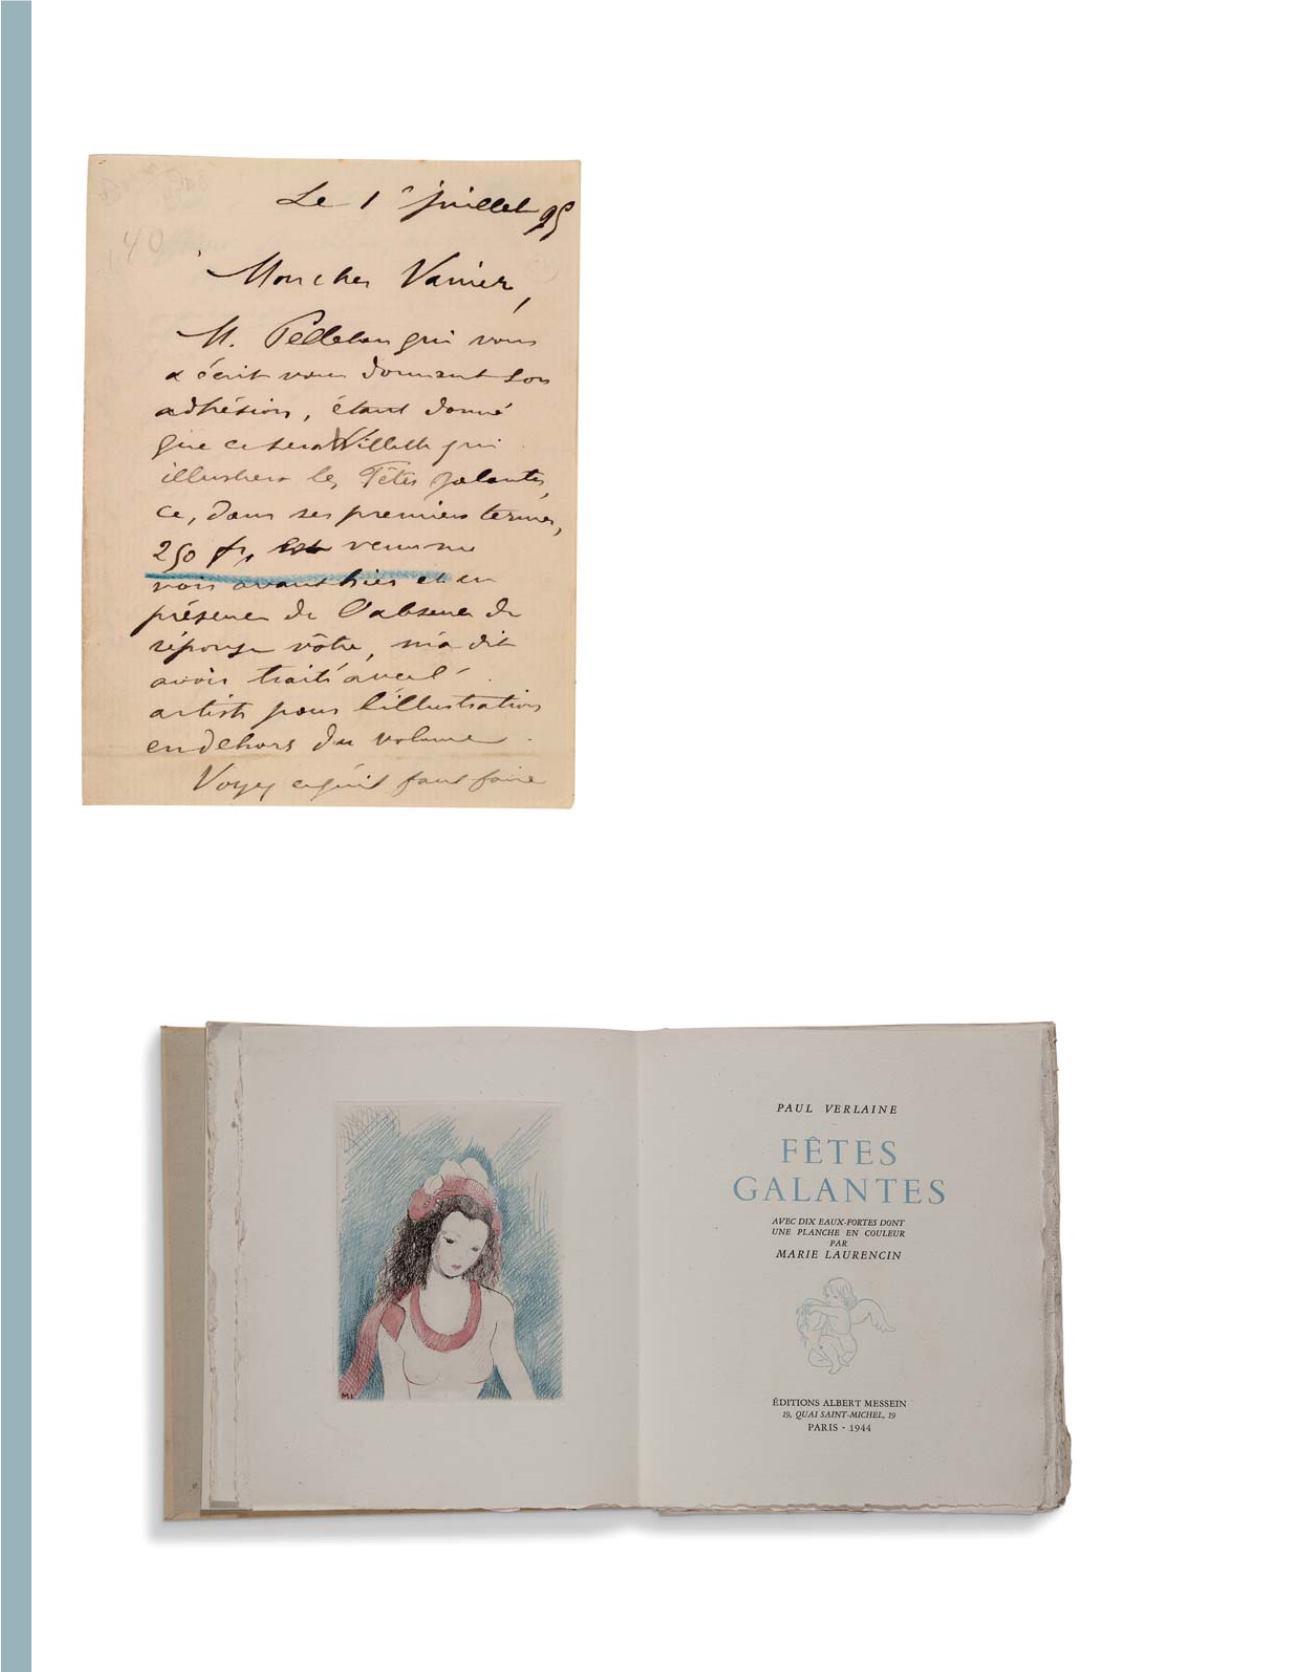 Le 1er juillet 95
Mon cher Vanier,
M. Pelletan qui vous
a écrit vous donnant son
adhésion, étant donné
que ce sera Willette qui
illustrera les Fêtes galantes,
ce, dans ses premiers termes,
250 fr, venu me
voir avant hier et en
présence de l'absence de
réponse vôtre, m'a dit
avoir traité avec l'
artiste pour l'illustration
en dehors du volume.
Voyez ce qu'il faut faire
PAUL VERLAINE
FÊTES
GALANTES
AVEC DIX EAUX-FORTES DONT
UNE PLANCHE EN COULEUR
PAR
MARIE LAURENCIN
ÉDITIONS ALBERT MESSEIN
19, QUAI SAINT-MICHEL, 19
PARIS - 1944